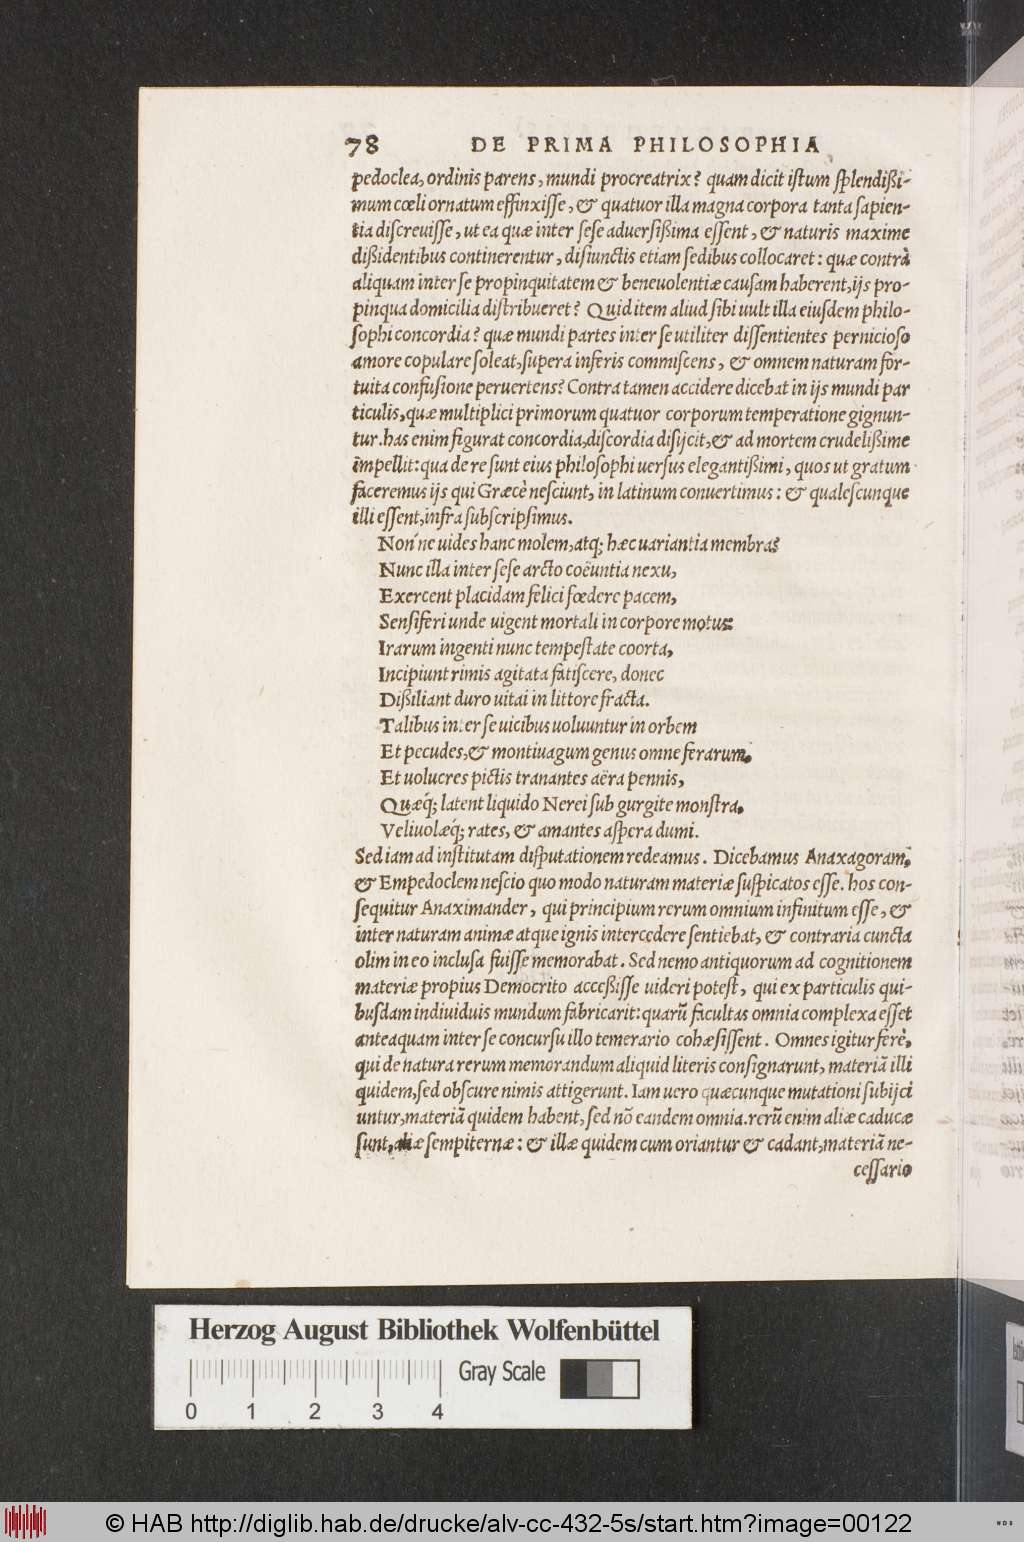 78 DE PRIMA PHILOSOPHIA
pedoclea, ordinis parens, mundi procreatrix? quam dicit istum splendißi-
mum cœli ornatum effinxisse, & quatuor illa magna corpora tanta sapien-
tia discreuisse, ut ea quæ inter sese aduersißima essent, & naturis maxime
dißidentibus continerentur, disiunctis etiam sedibus collocaret: quæ contrà
aliquam inter se propinquitatem & beneuolentiæ causam haberent, ijs pro-
pinqua domicilia distribueret? Quid item aliud sibi uult illa eiusdem philo-
sophi concordia? quæ mundi partes inter se utiliter dissentientes pernicioso
amore copulare soleat, supera inferis commiscens, & omnem naturam for-
tuita confusione peruertens? Contra tamen accidere dicebat in ijs mundi par
ticulis, quæ multiplici primorum quatuor corporum temperatione gignun-
tur. has enim figurat concordia, discordia disijcit, & ad mortem crudelißime
impellit: qua de re sunt eius philosophi uersus elegantißimi, quos ut gratum
faceremus ijs qui Græcè nesciunt, in latinum conuertimus: & qualescunque
illi essent, infra subscripsimus.
Non'ne uides hanc molem, atq; hæc uariantia membra?
Nunc illa inter sese arcto coëuntia nexu,
Exercent placidam felici fœdere pacem,
Sensiferi unde uigent mortali in corpore motus:
Irarum ingenti nunc tempestate coorta,
Incipiunt rimis agitata fatiscere, donec
Dißiliant duro uitai in littore fracta.
Talibus inter se uicibus uoluuntur in orbem
Et pecudes, & montiuagum genus omne ferarum,
Et uolucres pictis tranantes aëra pennis,
Quæq́; latent liquido Nerei sub gurgite monstra,
Veliuolæq́; rates, & amantes aspera dumi.
Sed iam ad institutam disputationem redeamus. Dicebamus Anaxagoram,
& Empedoclem nescio quo modo naturam materiæ suspicatos esse. hos con-
sequitur Anaximander, qui principium rerum omnium infinitum esse, &
inter naturam animæ atque ignis intercedere sentiebat, & contraria cuncta
olim in eo inclusa fuisse memorabat. Sed nemo antiquorum ad cognitionem
materiæ propius Democrito acceßisse uideri potest, qui ex particulis qui-
busdam indiuiduis mundum fabricarit: quarũ facultas omnia complexa esset
anteaquam inter se concursu illo temerario cohæsissent. Omnes igitur ferè,
qui de natura rerum memorandum aliquid literis consignarunt, materiã illi
quidem, sed obscure nimis attigerunt. Iam uero quæcunque mutationi subijci
untur, materiã quidem habent, sed nõ eandem omnia. rerũ enim aliæ caducæ
sunt, aliæ sempiternæ: & illæ quidem cum oriantur & cadant, materiã ne-
cessario
Herzog August Bibliothek Wolfenbüttel
Gray Scale
0 1 2 3 4
© HAB http://diglib.hab.de/drucke/alv-cc-432-5s/start.htm?image=00122